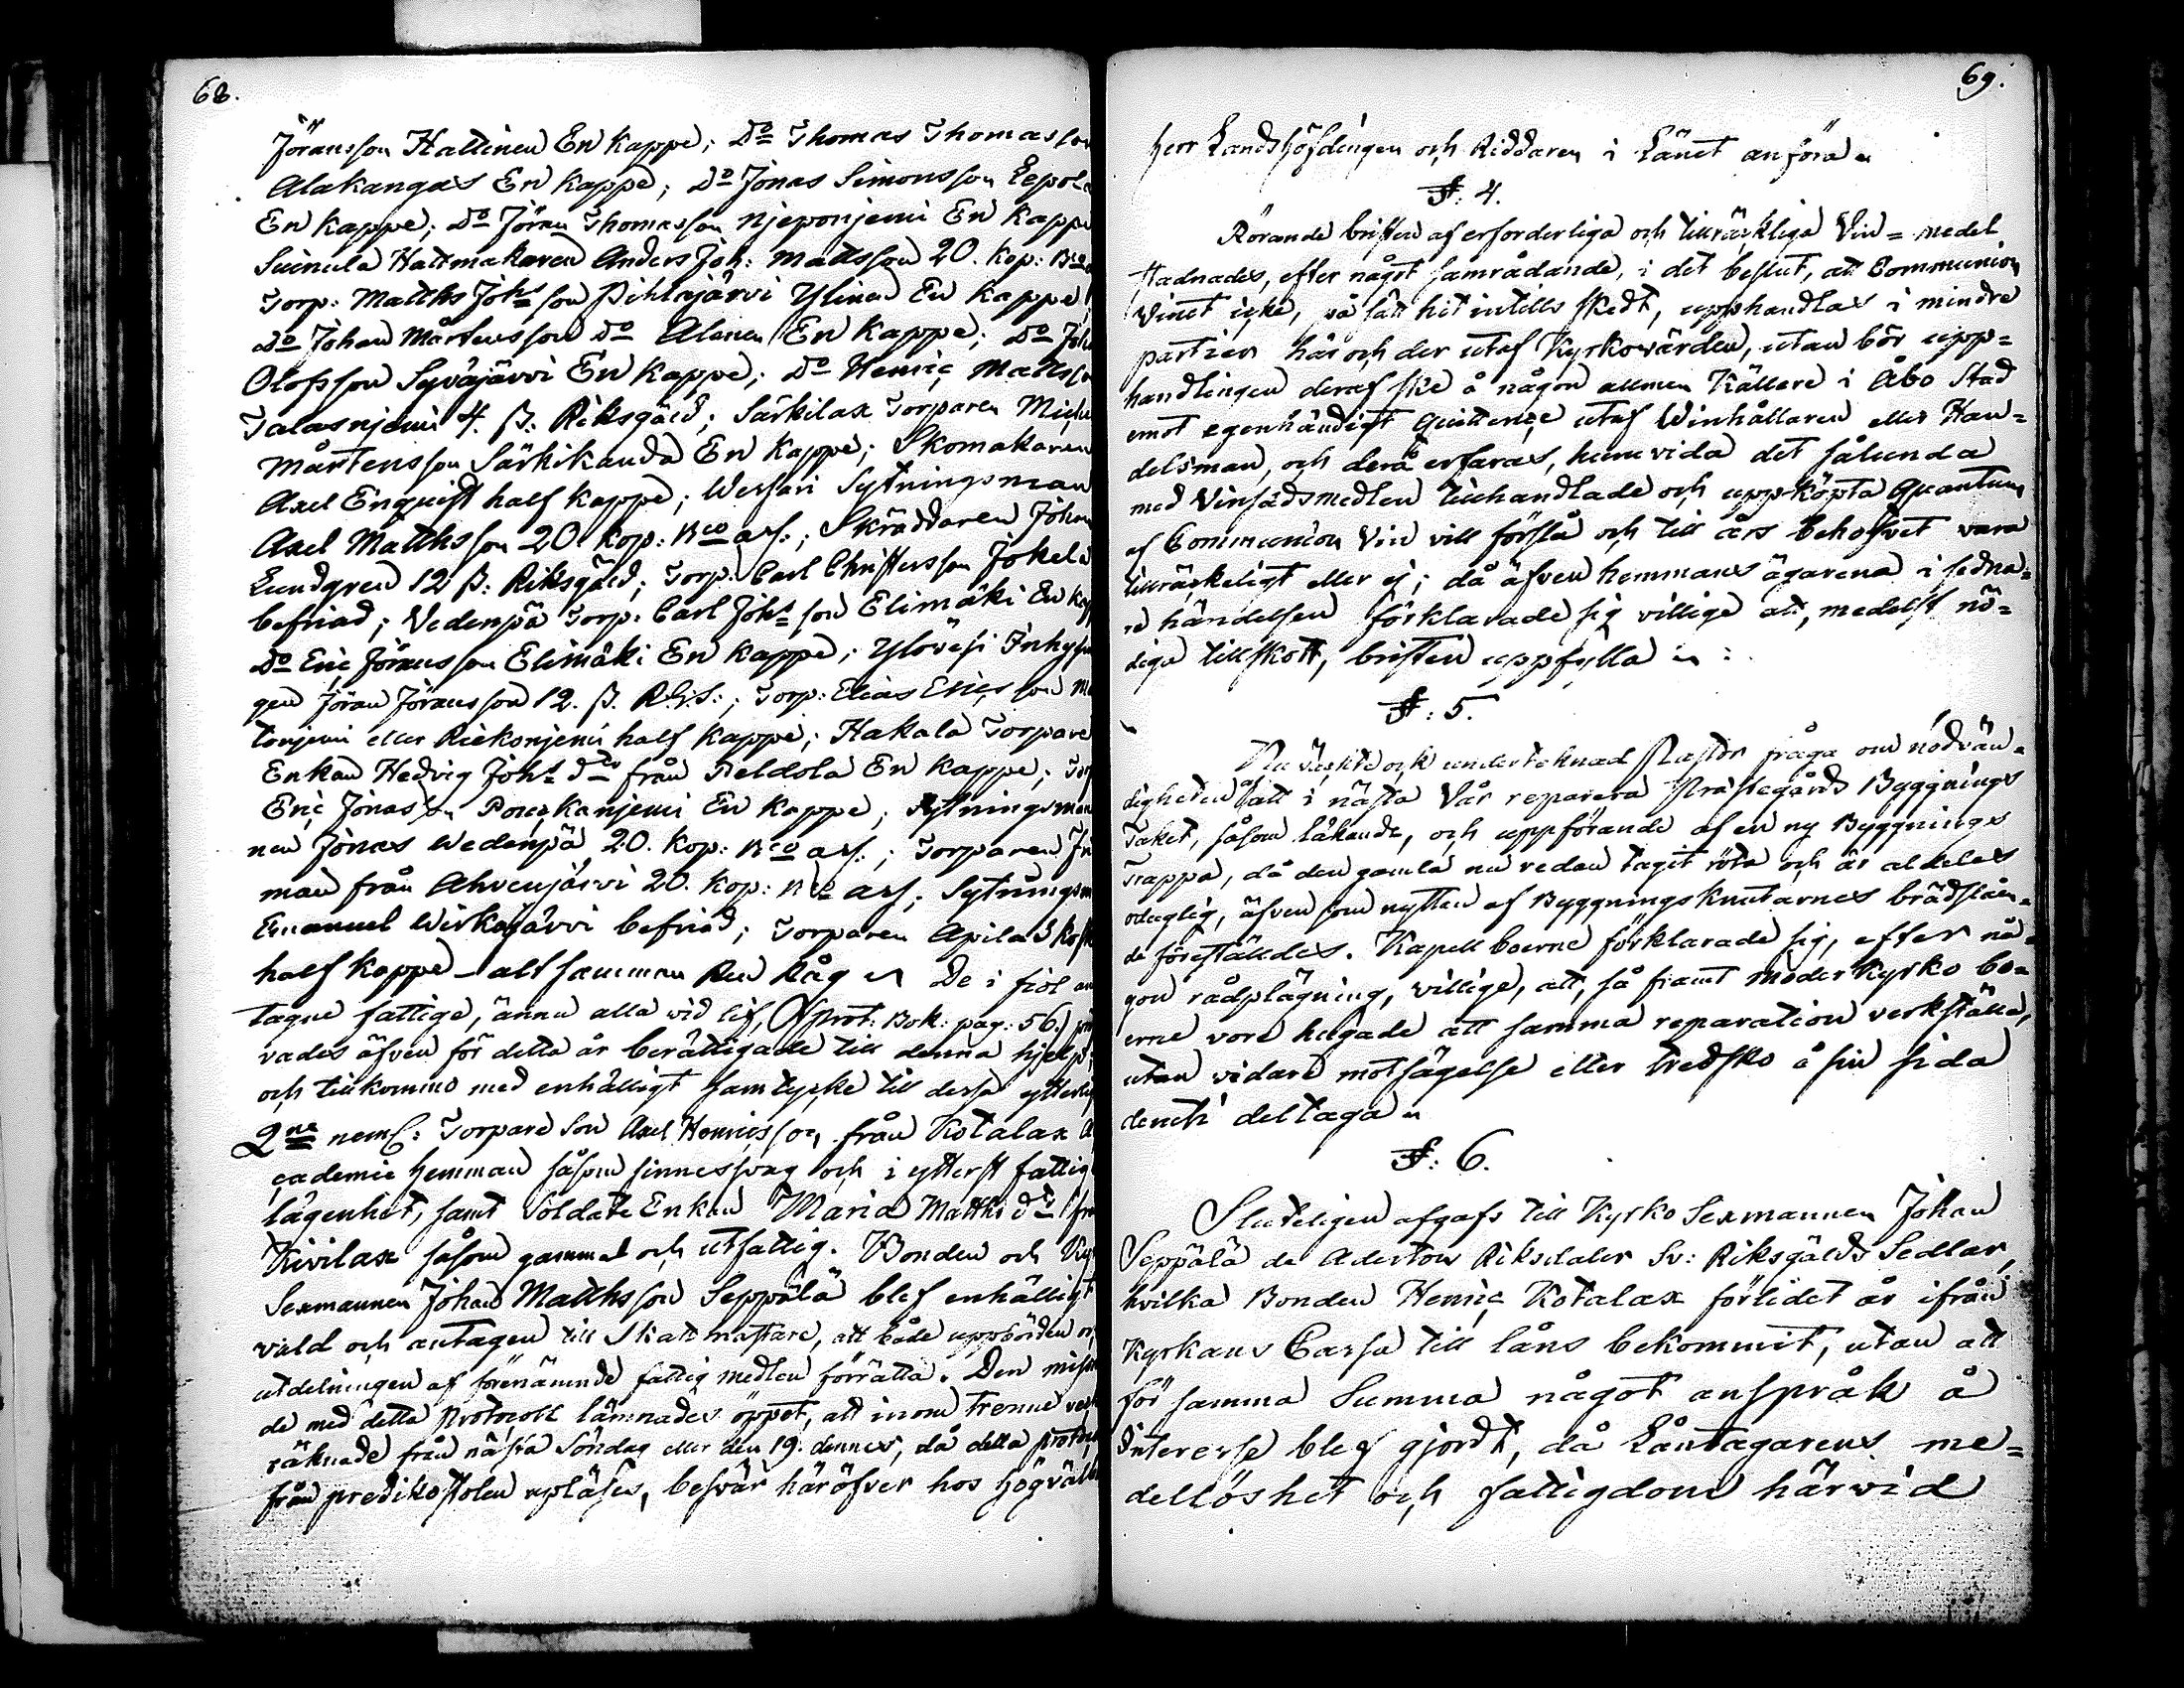 68.
Jöransson Hallinen En kappe; Do Thomas Thomasson
Alakangas En kappe; Do Jonas Simonsson Lepola
En kappe; Do Jöran Thomasson Njeponjemi En kappe
Suinula Hattmakaren Anders Joh: Mattsson 20. kop: Bco
Torp: Matths Johs son Pihlajärvi Ylinen En kappe,
Do Johan Mårtensson Do Alanen En kappe; Do Joh
Olofsson Syväjärvi En kappe; Do Henric Mattsso
Talasnjemi 4. ß. Riksgäld; Särkilax Torparen Miche
Mårtensson Särkikauda En kappe; Skomakaren
Axel Enquist half kappe; Wersari Sytningsman
Axel Matthsson 20. kop: Bco ass.; Skräddaren Johan
Lundgren 12 ß: Riksgäld; Torp. Carl Christersson Jokela
befriad; Vedenpä Torp. Carl Johs son Elimäki En kap
Do Eric Jöransson Elimäki En kappe; Ylövesi Inhyse
gen Jöran Jöransson 12. ß. R.G.S.; Torp: Elias Ericsson
tonjemi eller Rieksnjemi half kappe; Hakala Torpare
Enkan Hedvig Johs dr från Peldola En kappe; Torp
Eric Jonasson Pouskanjemi En kappe, Sytningsman
nen Jonas Wedenpä 20. kop: Bco ass.; Torparen
man från Ahvenjärvi 20. kop: Bco ass; Sytningsm
Emanuel Wirkajärvi befriad; Torparen Apila
half kappe – alt samman Ren Råg De i fiol an
tagne fattige, ännu alla wid lif, (Prot: Bok: pag: 56.) prö
vades äfven för detta år berättigade till denna hjelp;
och tillkommo med enhälligt samtycke till dessa ytterlig
2ne neml: Torpare Son Axel Henricsson från Kotalax A
cademie hemman såsom sinnessvag och i ytterst fattig
lägenhet, samt Soldats Enkan Maria Matths dr frå
Kivilax såsom gammal och utfattig. Bonden och Kyr
Sexmannen Johan Matthsson Seppälä blef enhälligt
vald och antagen till Skattmästare, att både uppbörden oc
utdelningen af förenämnde fattig medlen förrätta. Den missnö
de med detta Protocoll lämnades öppet, att inom trenne veck
räknade från nästa Söndag eller den 19. dennes, då detta protoc
från predikostolen upläses, besvär häröfver hos Högväl
69.
Herr Landshöfdingen och Riddaren i Länet anföra
§: 4.
Rörande bristen af erforderliga och tillräckliga Vin=medel
stadnades, efter något samrådande, i det beslut, att Communion
Vinet icke, på sätt hit intills skedt, upphandlas i mindre
partier här och der utaf Kyrkovärden, utan bör upp=
handlingen deraf ske å någon allmen Källare i Åbo Stad
emot egenhändigt Quittence utaf Winhållaren eller Han=
delsman, och derå erfaras, huruvida det sålunda
med Vinsädsmedlen tillhandlade och upp-köpta Quantum
af Communion Vin vill förslå och till års behofvet vara
tillräckeligt eller ej; då äfven hemmans ägarena i sedna=
re händelsen förklarade sig villige att, medelst nö=
dige tillskott, bristen uppfylla
§: 5.
Nu väckte ock undertecknad Pastor fråga om nödvän=
digheten af att i nästa Vår reparera Prästegårds Byggnings
Taket, såsom läkande, och uppförande af en ny Byggnings
Trappa, då den gamla nu redan tagit röta och är aldeles
oduglig, äfven som nyttan af Byggningsknutarnes brädslåen=
de föreställdes. Kapellboerne förklarade sig, efter nå=
gon rådplägning, villige, att, så framt Moderkyrko bo=
erne vore hugade att samma reparation verkställa,
utan vidare motsägelse eller tredsko å sin sida
deruti deltaga
§: 6.
Sluteligen afgafs till Kyrko Sexmannen Johan
Seppälä de Aderton Riksdaler Sv: Riksgälds Sedlar,
hvilka Bonden Henric Kotalax förlidet år ifrån
Kyrkans Cassa till låns bekommit, utan att
för samma Summa något anspråk å
Interesse blef gjordt, då Låntagarens me=
dellöshet och fattigdom härvid